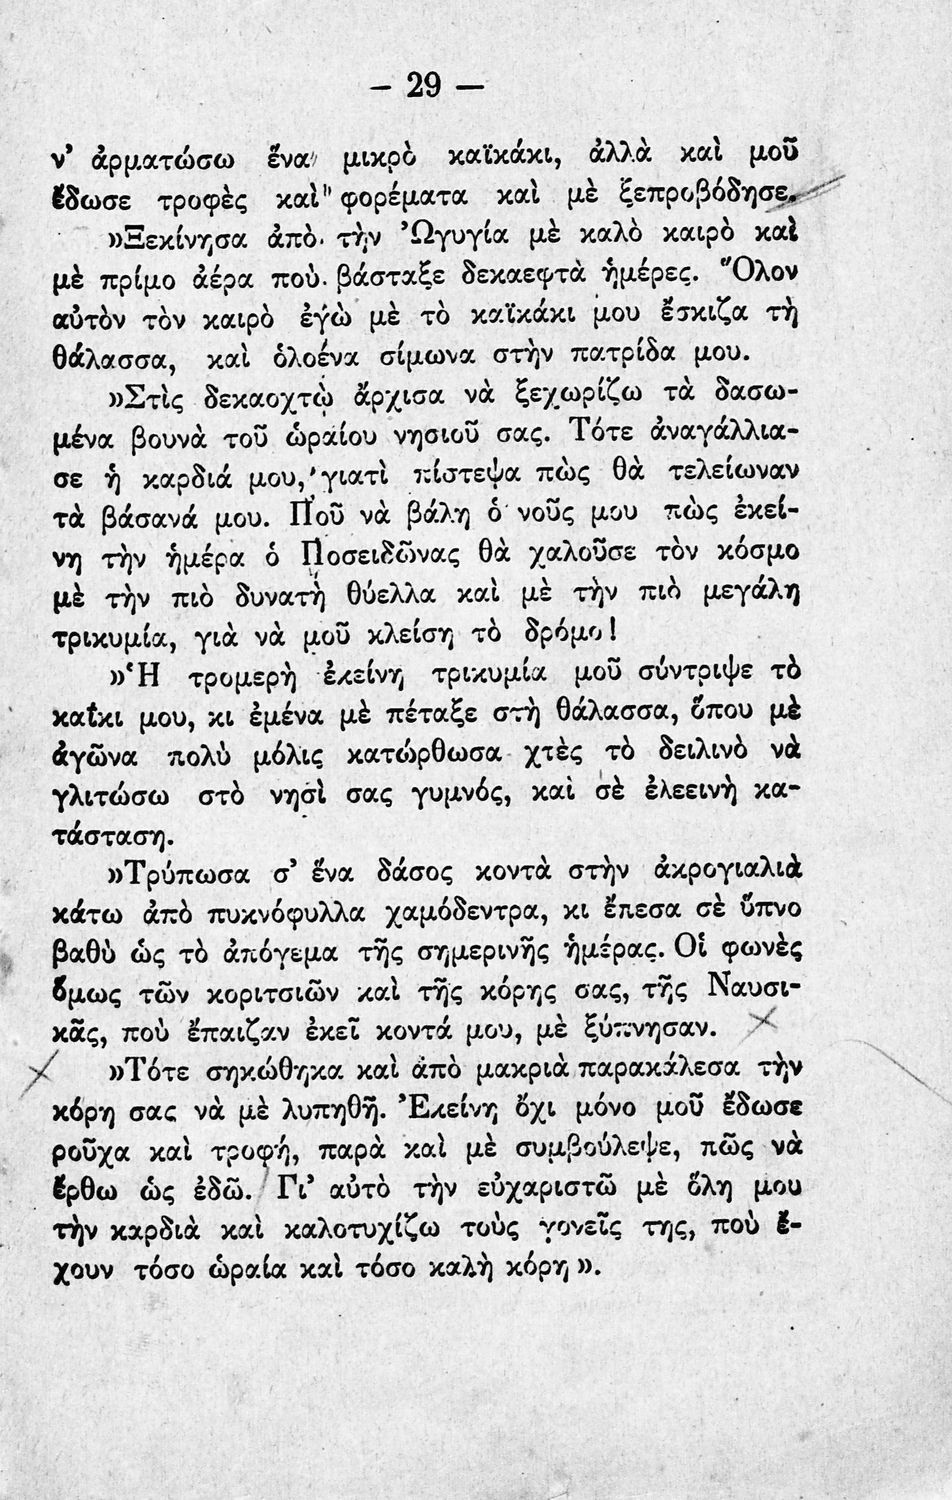 – 29 —
ν' ἁρματώσω ἕνα μικρὸ καϊκάκι, ἀλλὰ καὶ μοῦ
ἔδωσε τροφὲς καὶ φορέματα καὶ μὲ ξεπροβόδησε.
»Ξεκίνησα ἀπὸ τὴν Ὠγυγία μὲ καλὸ καιρὸ καὶ
μὲ πρίμο ἀέρα ποὺ βάσταξε δεκαεφτὰ ἡμέρες. Ὅλον
αὐτὸν τὸν καιρὸ ἐγὼ μὲ τὸ καϊκάκι μου ἔσκιζα τὴ
θάλασσα, καὶ ὁλοένα σίμωνα στὴν πατρίδα μου.
»Στὶς δεκαοχτὼ ἄρχισα νὰ ξεχωρίζω τὰ δασω-
μένα βουνὰ τοῦ ὡραίου νησιοῦ σας. Τότε ἀναγάλλια-
σε ἡ καρδιά μου, γιατὶ πίστεψα πὼς θὰ τελείωναν
τὰ βάσανά μου. Ποῦ νὰ βάλη ὁ νοῦς μου πὼς ἐκεί-
νη τὴν ἡμέρα ὁ Ποσειδῶνας θὰ χαλοῦσε τὸν κόσμο
μὲ τὴν πιὸ δυνατὴ θύελλα καὶ μὲ τὴν πιὸ μεγάλη
τρικυμία, γιὰ νὰ μοῦ κλείση τὸ δρόμο!
»Ἡ τρομερὴ ἐκείνη τρικυμία μοῦ σύντριψε τὸ
καΐκι μου, κι ἐμένα μὲ πέταξε στὴ θάλασσα, ὅπου μὲ
ἀγῶνα πολὺ μόλις κατώρθωσα χτὲς τὸ δειλινὸ νὰ
γλιτώσω στὸ νησὶ σας γυμνός, καὶ σὲ ἐλεεινὴ κα-
τάσταση.
»Τρύπωσα σ' ἕνα δάσος κοντὰ στὴν ἀκρογιαλιὰ
κάτω ἀπὸ πυκνόφυλλα χαμόδεντρα, κι ἔπεσα σὲ ὕπνο
βαθὺ ὡς τὸ ἀπόγεμα τῆς σημερινῆς ἡμέρας. Οἱ φωνὲς
ὅμως τῶν κοριτσιῶν καὶ τῆς κόρης σας, τῆς Ναυσι-
κᾶς, ποὺ ἔπαιζαν ἐκεῖ κοντά μου, μὲ ξύπνησαν.
»Τότε σηκώθηκα καὶ ἀπὸ μακριὰ παρακάλεσα τὴν
κόρη σας νὰ μὲ λυπηθῆ. Ἐκείνη ὄχι μόνο μοῦ ἔδωσε
ροῦχα καὶ τροφή, παρὰ καὶ μὲ συμβούλεψε, πῶς νὰ
ἔρθω ὡς ἐδῶ. Γι' αὐτὸ τὴν εὐχαριστῶ μὲ ὅλη μου
τὴν καρδιὰ καὶ καλοτυχίζω τοὺς γονεῖς της, ποὺ ἔ-
χουν τόσο ὡραία καὶ τόσο καλὴ κόρη».